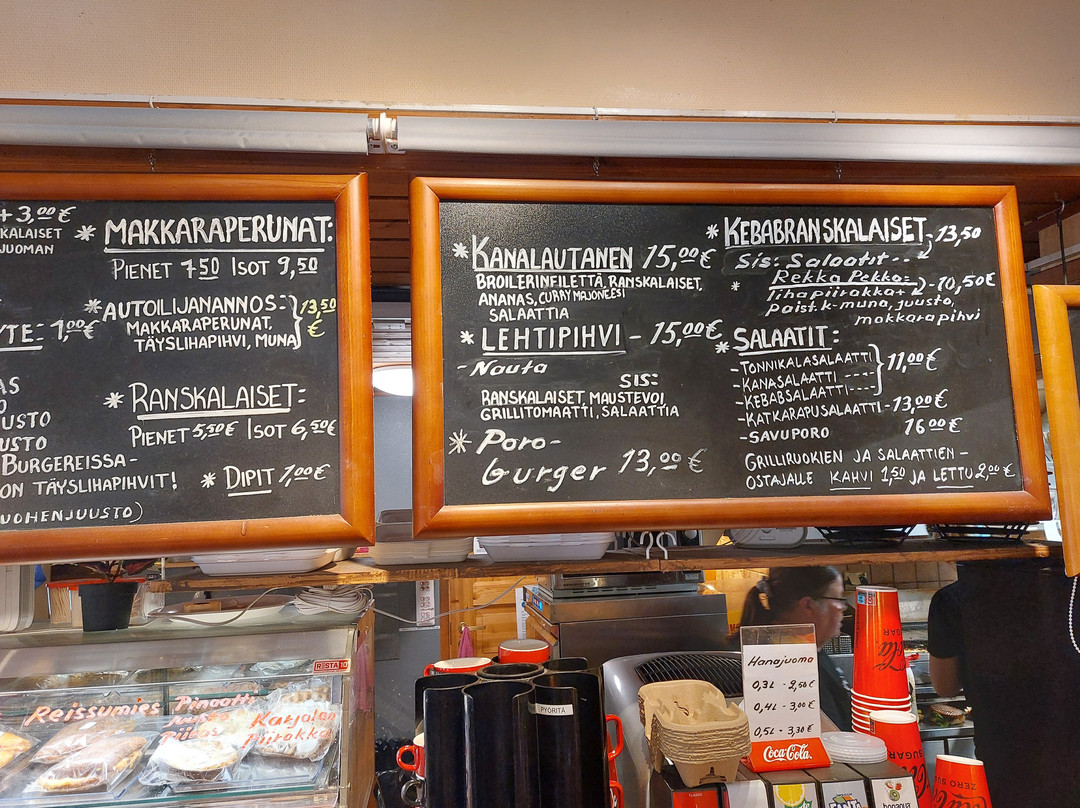 +3,00€
KALAISET
JUOMAN
1,00€
USTO
USTO
BURGEREISSA-
ON TÄYSLIHAPIHVIT!
UOHENJUUSTO)
* MAKKARAPERUNAT:
PIENET 7,50 ISOT 9,50
* AUTOILIJANANNOS:- 13,50 €
MAKKARAPERUNAT,
TÄYSLIHAPIHVI, MUNA
* RANSKALAISET:-
PIENET 5,50€ ISOT 6,50€
* DIPIT 1,00€
* KANALAUTANEN 15,00€
BROILERINFILETTÄ, RANSKALAISET,
ANANAS, CURRYMAJONEESI
SALAATTIA
* LEHTIPIHVI - 15,00€
- Nauta
SIS:
RANSKALAISET, MAUSTEVOI,
GRILLITOMAATTI, SALAATTIA
* Poro-
burger 13,00€
* KEBABRANSKALAISET- 13,50
Sis: Salaatit--
* Rekka Pekko:- 10,50€
lihapiirakka+
Paist.k-muna, juusto,
makkarapihvi
* SALAATIT:
- TONNIKALASALAATTI 11,00€
- KANASALAATTI ----
- KEBABSALAATTI ----
- KATKARAPUSALAATTI - 13,00€
- SAVUPORO 16,00€
GRILLIRUOKIEN JA SALAATTIEN -
OSTAJALLE KAHVI 1,50 JA LETTU 2,00€
RESTA 10
Reissumies
Pinaatti
Juusto
Piiras
Karjalan
Piirakka
PYÖRITÄ
Hanajuoma
0,3L - 2,50€
0,4L - 3,00€
0,5L - 3,30€
Coca-Cola
SUGAR
ZERO SUGAR
FANTA
bonaqua